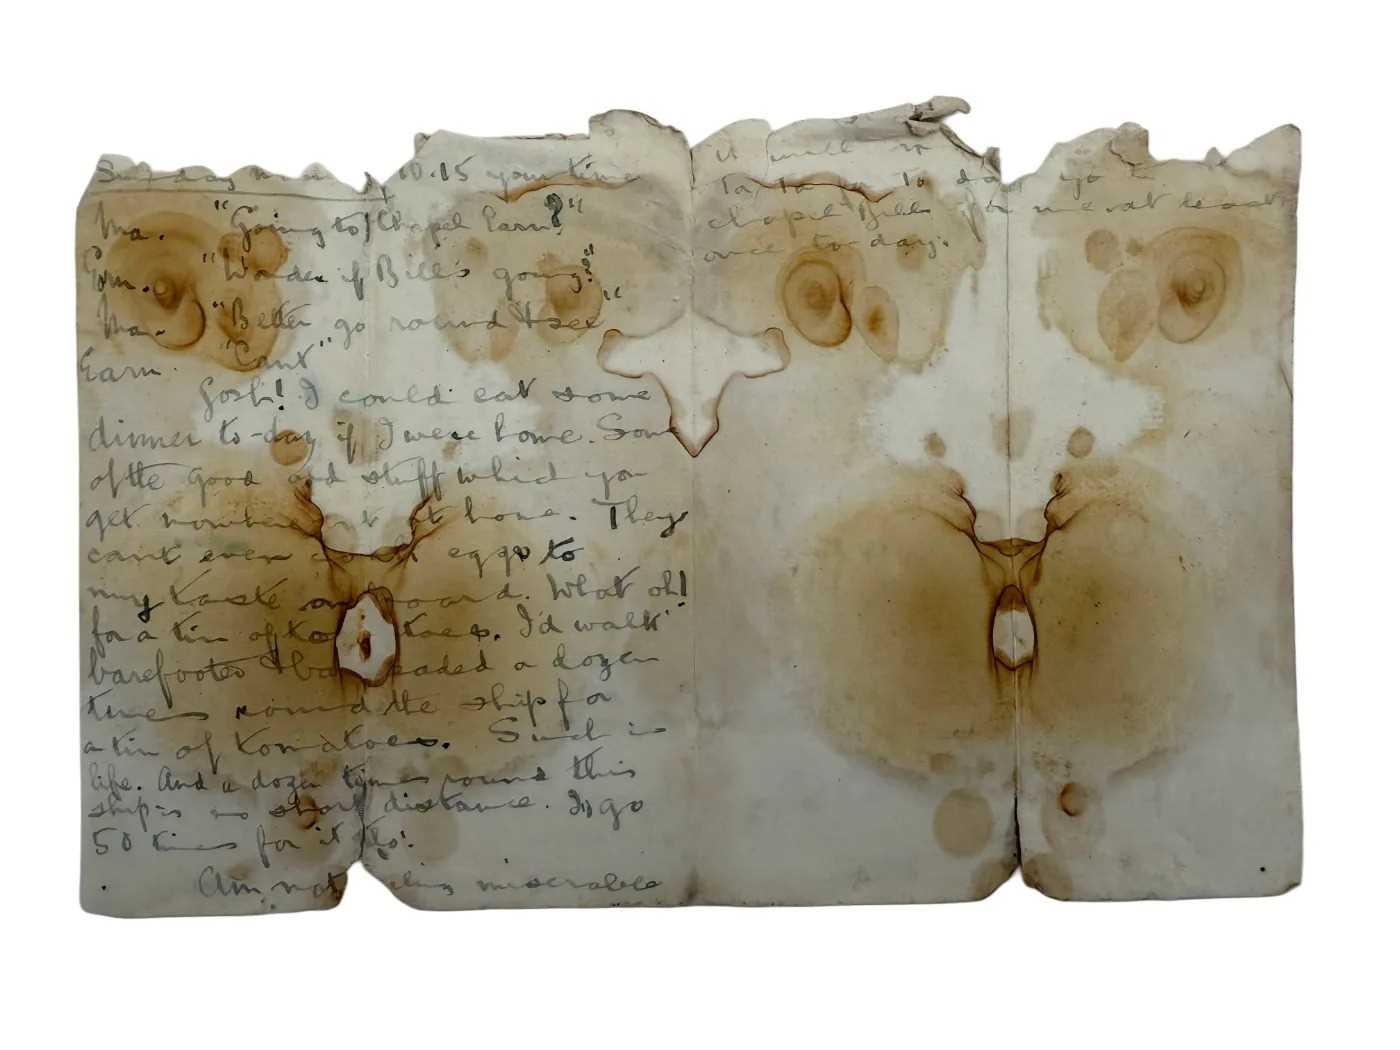 Sunday 10.15 your time
Ma. "Going to Chapel Earn?"
Ern. "Wonder if Bill's going?"
Ma. "Better go round & see"
Earn. "Cant"
Gosh! I could eat some
dinner to-day if I were home. Some
of the good stuff which you
get nowhere at home. They
cant even eggs to
my taste on board. What oh!
for a tin of toes. I'd walk
barefooted & ba eaded a dozen
times round the ship for
a tin of tomatoes. Such is
life. And a dozen times round this
ship is no short distance. I'd go
50 times for it also.
Am not miserable
it will
Ta, ta to day go to
chapel Bill for me at least
once to-day.